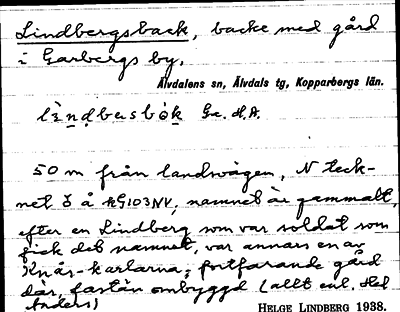 Lindbergsback, backe med gård
i Garbergs by.
Älvdalens sn, Älvdals tg, Kopparbergs län.
Ge. H.A.
50 m från landsvägen, N teck-
net ŏ å AG103NV, namnet är gammalt,
efter en Lindberg som var soldat som
fick det namnet, var annars en av
Knås-karlarna; fortfarande gård
där, fastän ombyggd (allt enl. Hed
Anders)
HELGE LINDBERG 1938.